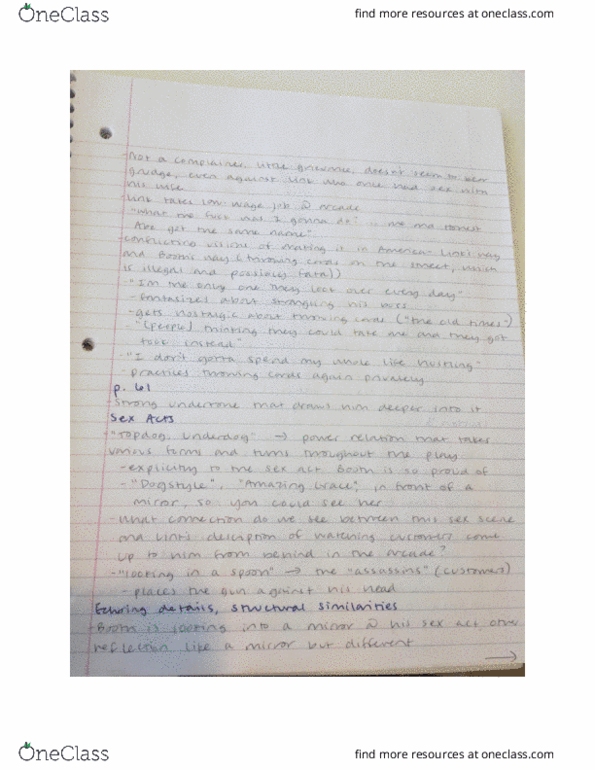 OneClass
find more resources at oneclass.com
-Not a complainer, little grievance, doesn't seem to bear
grudge, even against Link who once had sex with
his wife
-Link takes low wage job @ arcade
"What the fuck was I gonna do? .. me and Honest
Abe got the same name"
-conflicting visions of making it in America- Link's way
and Booth's way (throwing cards on the street, which
is illegal and possibly fatal)
-"I'm the only one they look over every day"
-fantasizes about strangling his wife
-gets nostalgic about throwing cards ("the old times")
-"[people] thinking they could take me and they got
took instead"
-"I don't gotta spend my whole life hustling"
-practices throwing cards again privately
p. 61
Strong undertone that draws him deeper into it
Sex Acts
"Topdog, Underdog" → power relation that takes
various forms and turns throughout the play
-explicitly to the sex act Booth is so proud of
-"Dogstyle", "Amazing Grace", in front of a
mirror, so you could see her
-What connection do we see between this sex scene
and Link's description of watching customers come
up to him from behind in the arcade?
-"looking in a spoon" → the "assassins" (customer)
-places the gun against his head
Echoing details, structural similarities
-Booth is looking into a mirror @ his sex act, other
reflection like a mirror but different
→
OneClass
find more resources at oneclass.com